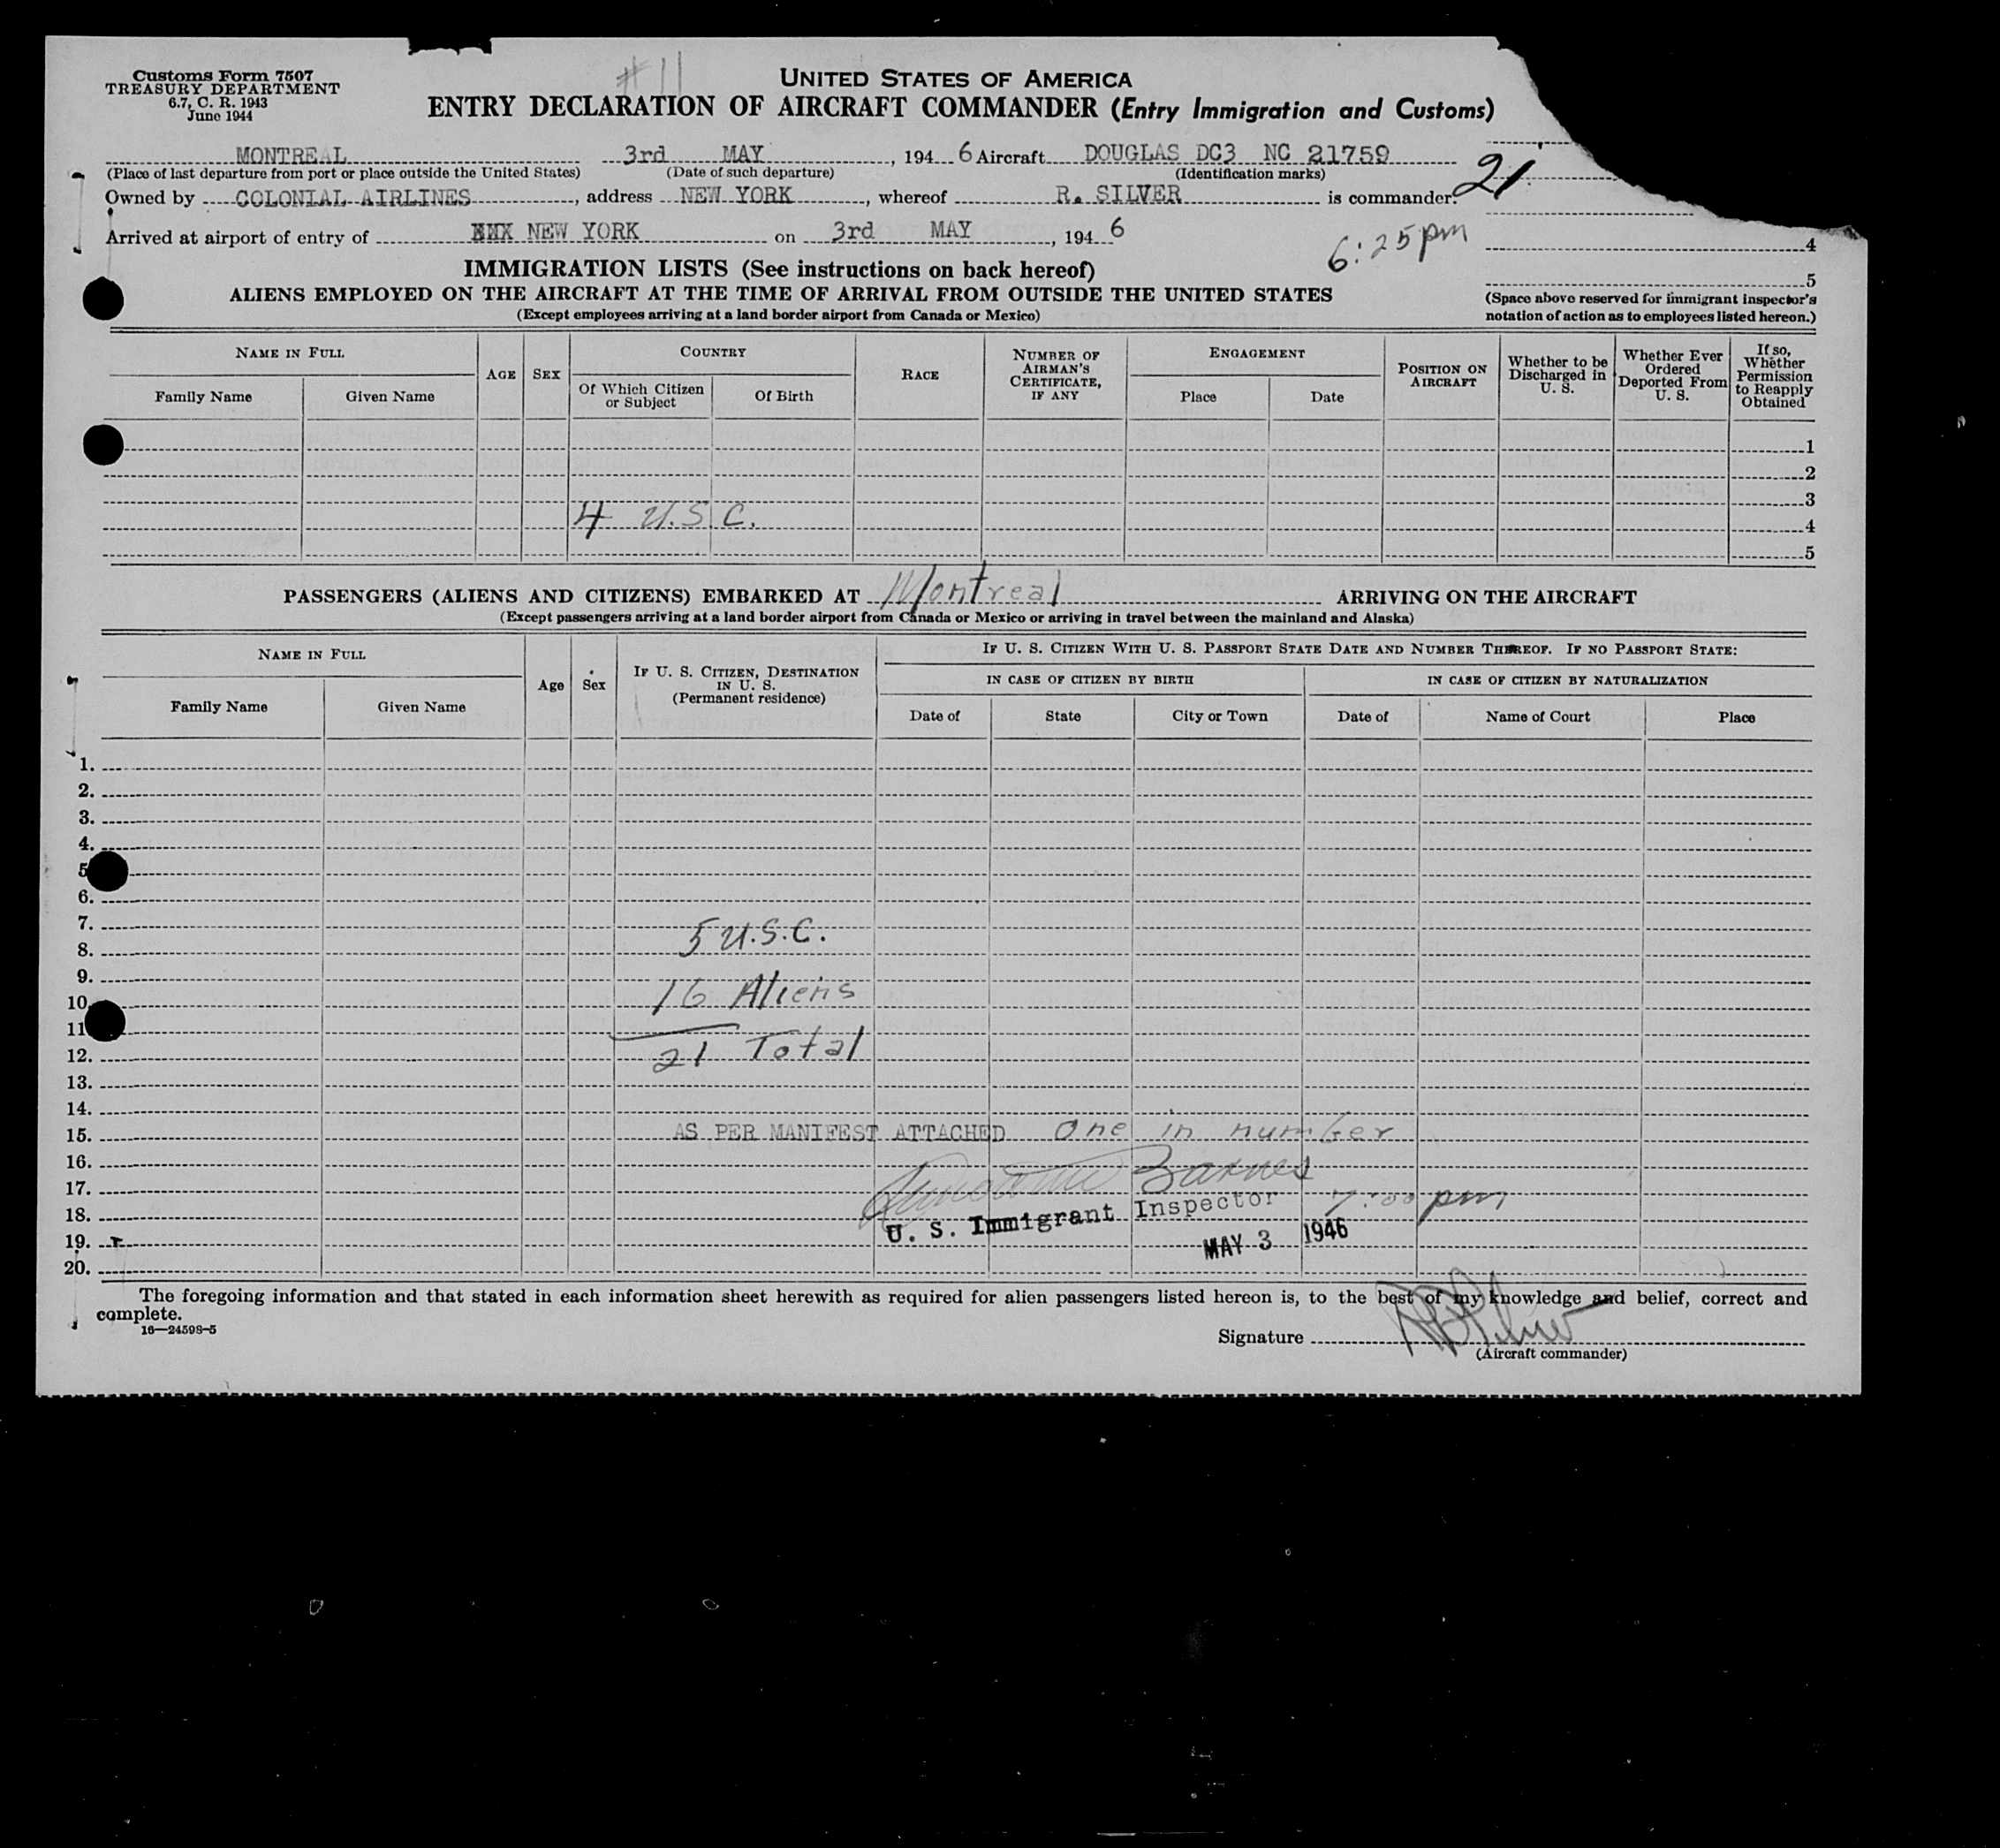 Customs Form 7507
TREASURY DEPARTMENT
6.7, C. R. 1943
June 1944
#11
UNITED STATES OF AMERICA
ENTRY DECLARATION OF AIRCRAFT COMMANDER (Entry Immigration and Customs)
MONTREAL 3rd MAY, 194 6 Aircraft DOUGLAS DC3 NC 21759
(Place of last departure from port or place outside the United States) (Date of such departure) (Identification marks)
21
Owned by COLONIAL AIRLINES, address NEW YORK, whereof R. SILVER is commander.
Arrived at airport of entry of NEW YORK on 3rd MAY, 194 6
6:25 pm
4
5
IMMIGRATION LISTS (See instructions on back hereof)
ALIENS EMPLOYED ON THE AIRCRAFT AT THE TIME OF ARRIVAL FROM OUTSIDE THE UNITED STATES
(Except employees arriving at a land border airport from Canada or Mexico)
(Space above reserved for immigrant inspector's
notation of action as to employees listed hereon.)
NAME IN FULL
Family Name
Given Name
AGE
SEX
COUNTRY
Of Which Citizen
or Subject
Of Birth
RACE
NUMBER OF
AIRMAN'S
CERTIFICATE,
IF ANY
ENGAGEMENT
Place
Date
POSITION ON
AIRCRAFT
Whether to be
Discharged in
U. S.
Whether Ever
Ordered
Deported From
U. S.
If so,
Whether
Permission
to Reapply
Obtained
1
2
3
4 U.S.C.
4
5
PASSENGERS (ALIENS AND CITIZENS) EMBARKED AT Montreal ARRIVING ON THE AIRCRAFT
(Except passengers arriving at a land border airport from Canada or Mexico or arriving in travel between the mainland and Alaska)
NAME IN FULL
Family Name
Given Name
Age
Sex
IF U. S. CITIZEN, DESTINATION
IN U. S.
(Permanent residence)
IF U. S. CITIZEN WITH U. S. PASSPORT STATE DATE AND NUMBER THEREOF. IF NO PASSPORT STATE:
IN CASE OF CITIZEN BY BIRTH
Date of
State
City or Town
IN CASE OF CITIZEN BY NATURALIZATION
Date of
Name of Court
Place
1.
2.
3.
4.
5
6.
7.
5 U.S.C.
8.
9.
16 Aliens
10
11
21 Total
12.
13.
14.
15. AS PER MANIFEST ATTACHED One in number
16.
Barnes
17.
7:00 pm
18. U. S. Immigrant Inspector
19. MAY 3 1946
20.
The foregoing information and that stated in each information sheet herewith as required for alien passengers listed hereon is, to the best of my knowledge and belief, correct and
complete.
16—24598-5
Signature
(Aircraft commander)